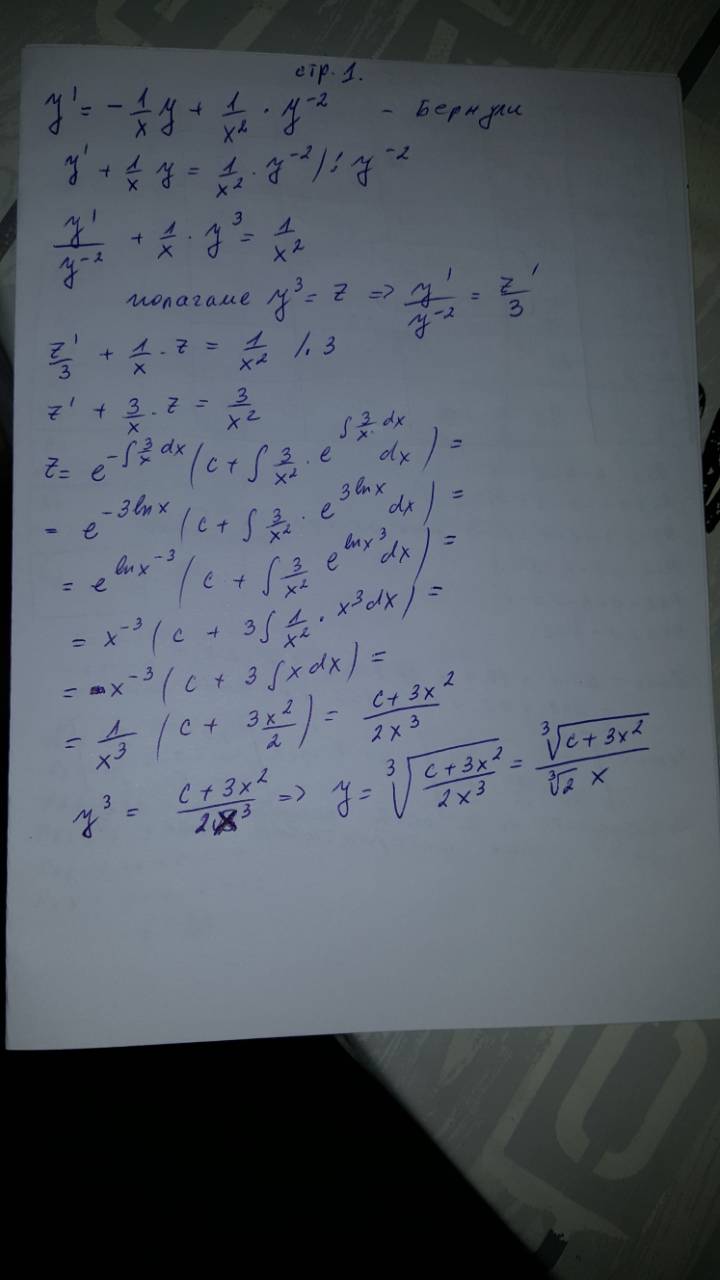 стр. 1.
y' = - 1/x y + 1/x² · y⁻² - Бернули
y' + 1/x y = 1/x² · y⁻² / : y⁻²
y'/y⁻² + 1/x · y³ = 1/x²
полагаме y³ = z => y'/y⁻² = z'/3
z'/3 + 1/x · z = 1/x² /. 3
z' + 3/x · z = 3/x²
z = e^(-∫ 3/x dx) (c + ∫ 3/x² · e^(∫ 3/x · dx) dx) =
= e^(-3lnx) (c + ∫ 3/x² · e^(3lnx) dx) =
= e^(lnx⁻³) (c + ∫ 3/x² e^(lnx³) dx) =
= x⁻³ (c + 3∫ 1/x² · x³ dx) =
= x⁻³ (c + 3∫x dx) =
= 1/x³ (c + 3x²/2) = (c + 3x²)/(2x³)
y³ = (c + 3x²)/(2x³) => y = ∛((c + 3x²)/(2x³)) = ∛(c + 3x²)/(∛2 x)